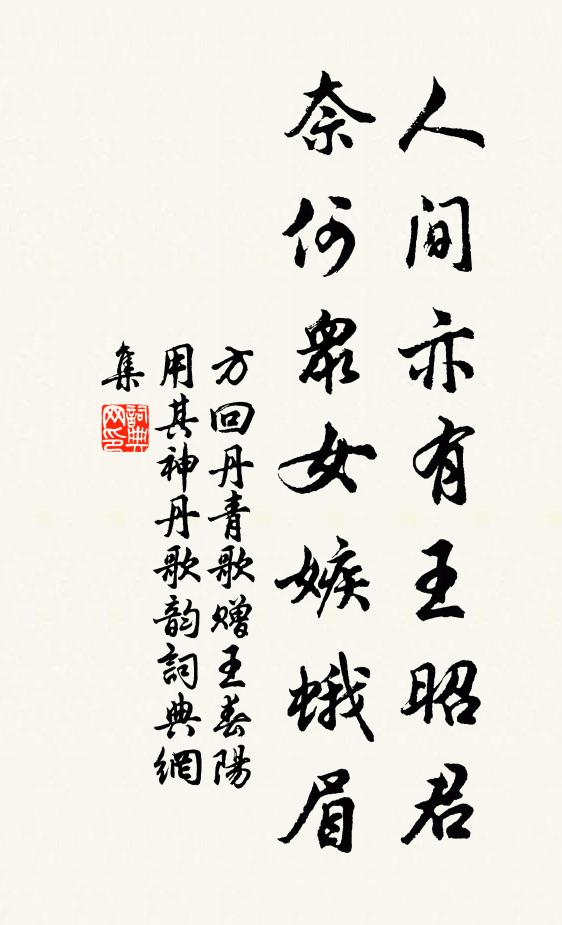 人间亦有王昭君
奈何眾女嫉蛾眉
方回丹青歌赠王春陽
用其神丹歌韵詞典網
集
詞典
网印